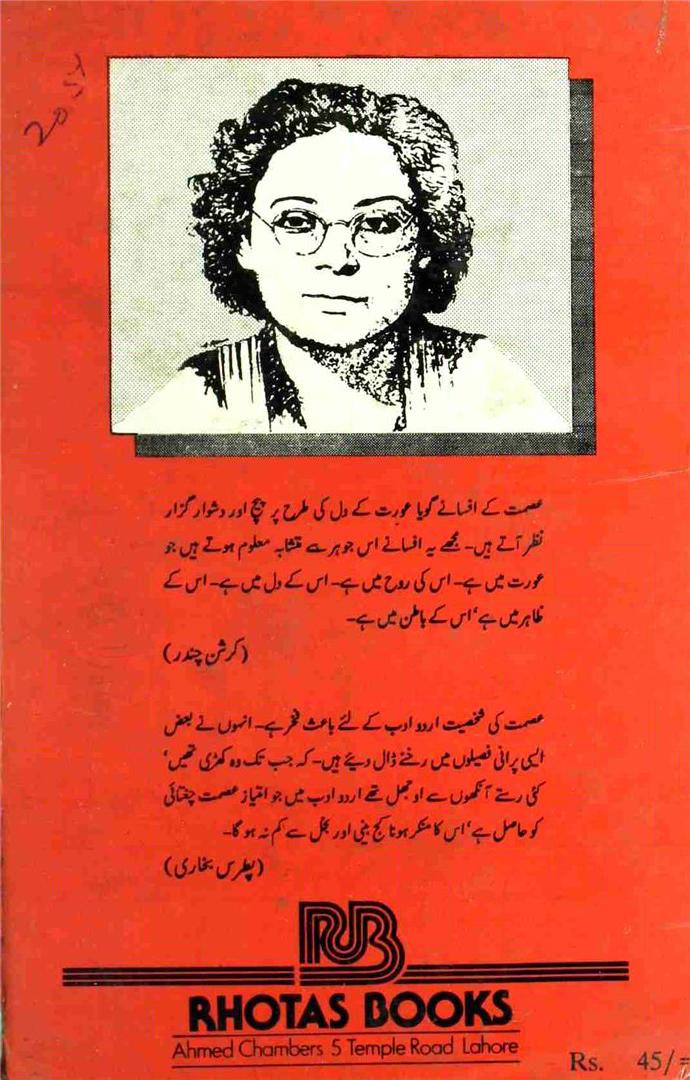 20
عصمت کے افسانے گویا عورت کے دل کی طرح پر پیچ اور دشوار گزار
نظر آتے ہیں۔ مجھے یہ افسانے اس جوہر سے متشابہ معلوم ہوتے ہیں جو
عورت میں ہے۔ اس کی روح میں ہے۔ اس کے دل میں ہے۔ اس کے
ظاہر میں ہے‘ اس کے باطن میں ہے۔
(کرشن چندر)
عصمت کی شخصیت اردو ادب کے لئے باعث فخر ہے۔ انہوں نے بعض
ایسی پرانی فصیلوں میں رخنے ڈال دیئے ہیں۔ کہ جب تک وہ کھڑی تھیں‘
کئی رستے آنکھوں سے اوجھل تھے اردو ادب میں جو امتیاز عصمت چغتائی
کو حاصل ہے‘ اس کا منکر ہونا کج بینی اور بخل سے کم نہ ہو گا۔
(پطرس بخاری)
RB
RHOTAS BOOKS
Ahmed Chambers 5 Temple Road Lahore
Rs. 45/=